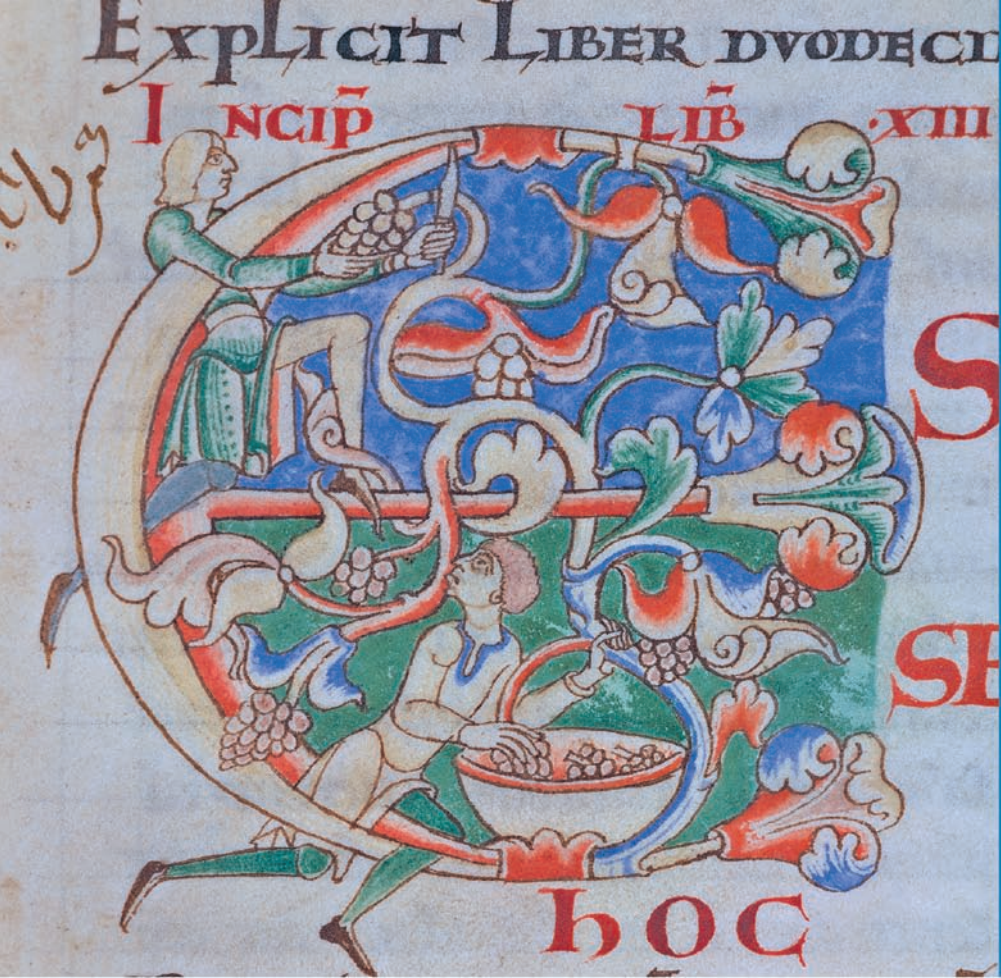 ExpLICIT LIBER DVODECI
INCIP̃ LIB̃ ·XIII
E S
SE
hOC